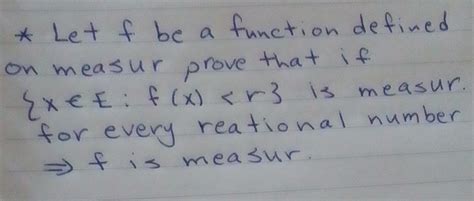 * Let f be a function defined
on measur prove that if
{x ∈ E : f(x) < r} is measur.
for every reational number
⇒ f is measur.